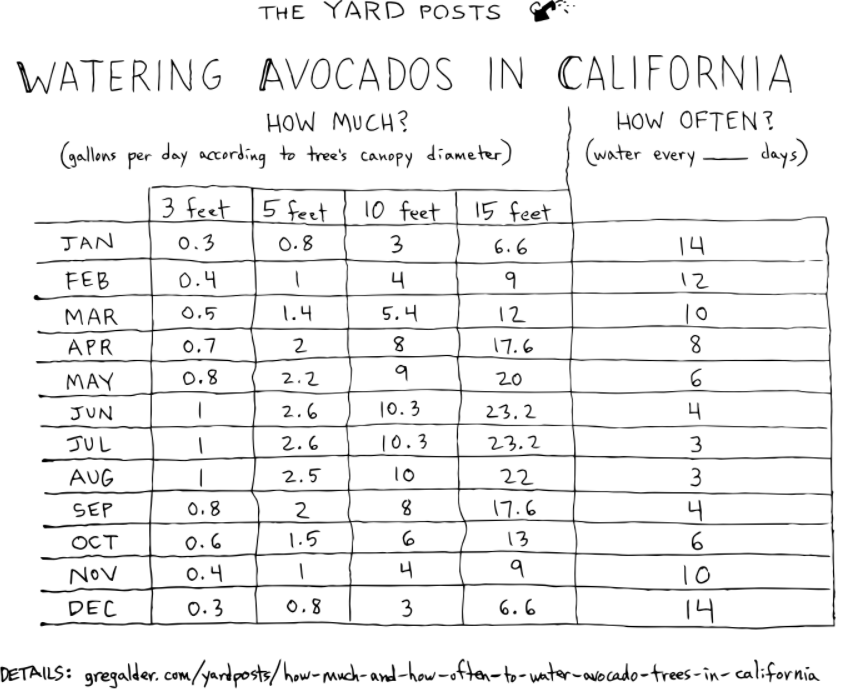 THE YARD POSTS
WATERING AVOCADOS IN CALIFORNIA
HOW MUCH? HOW OFTEN?
(gallons per day according to tree's canopy diameter) (water every ___ days)
3 feet 5 feet 10 feet 15 feet
JAN 0.3 0.8 3 6.6 14
FEB 0.4 1 4 9 12
MAR 0.5 1.4 5.4 12 10
APR 0.7 2 8 17.6 8
MAY 0.8 2.2 9 20 6
JUN 1 2.6 10.3 23.2 4
JUL 1 2.6 10.3 23.2 3
AUG 1 2.5 10 22 3
SEP 0.8 2 8 17.6 4
OCT 0.6 1.5 6 13 6
NOV 0.4 1 4 9 10
DEC 0.3 0.8 3 6.6 14
DETAILS: gregalder.com/yardposts/how-much-and-how-often-to-water-avocado-trees-in-california